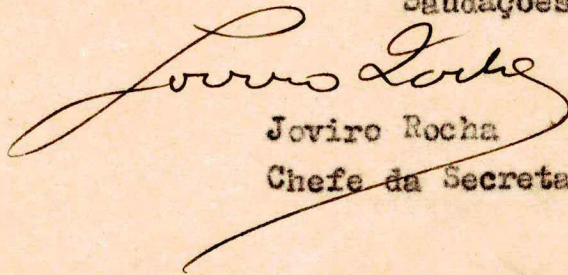 Saudações
Joviro Rocha
Joviro Rocha
Chefe da Secreta